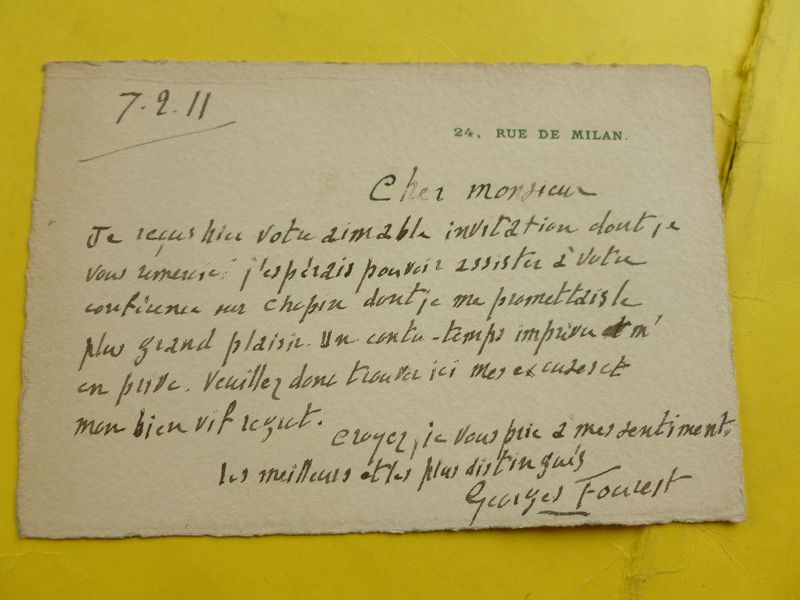 7.2.11
24, RUE DE MILAN.
Cher monsieur
Je reçus hier votre aimable invitation dont je
vous remercie: j'espérais pouvoir assister à votre
conférence sur Chopin dont je me promettais le
plus grand plaisir. Un contre-temps imprévu m'
en prive. Veuillez donc trouver ici mes excuses et
mon bien vif regret.
Croyez, je vous prie à mes sentiments
les meilleurs et les plus distingués
Georges Fourest